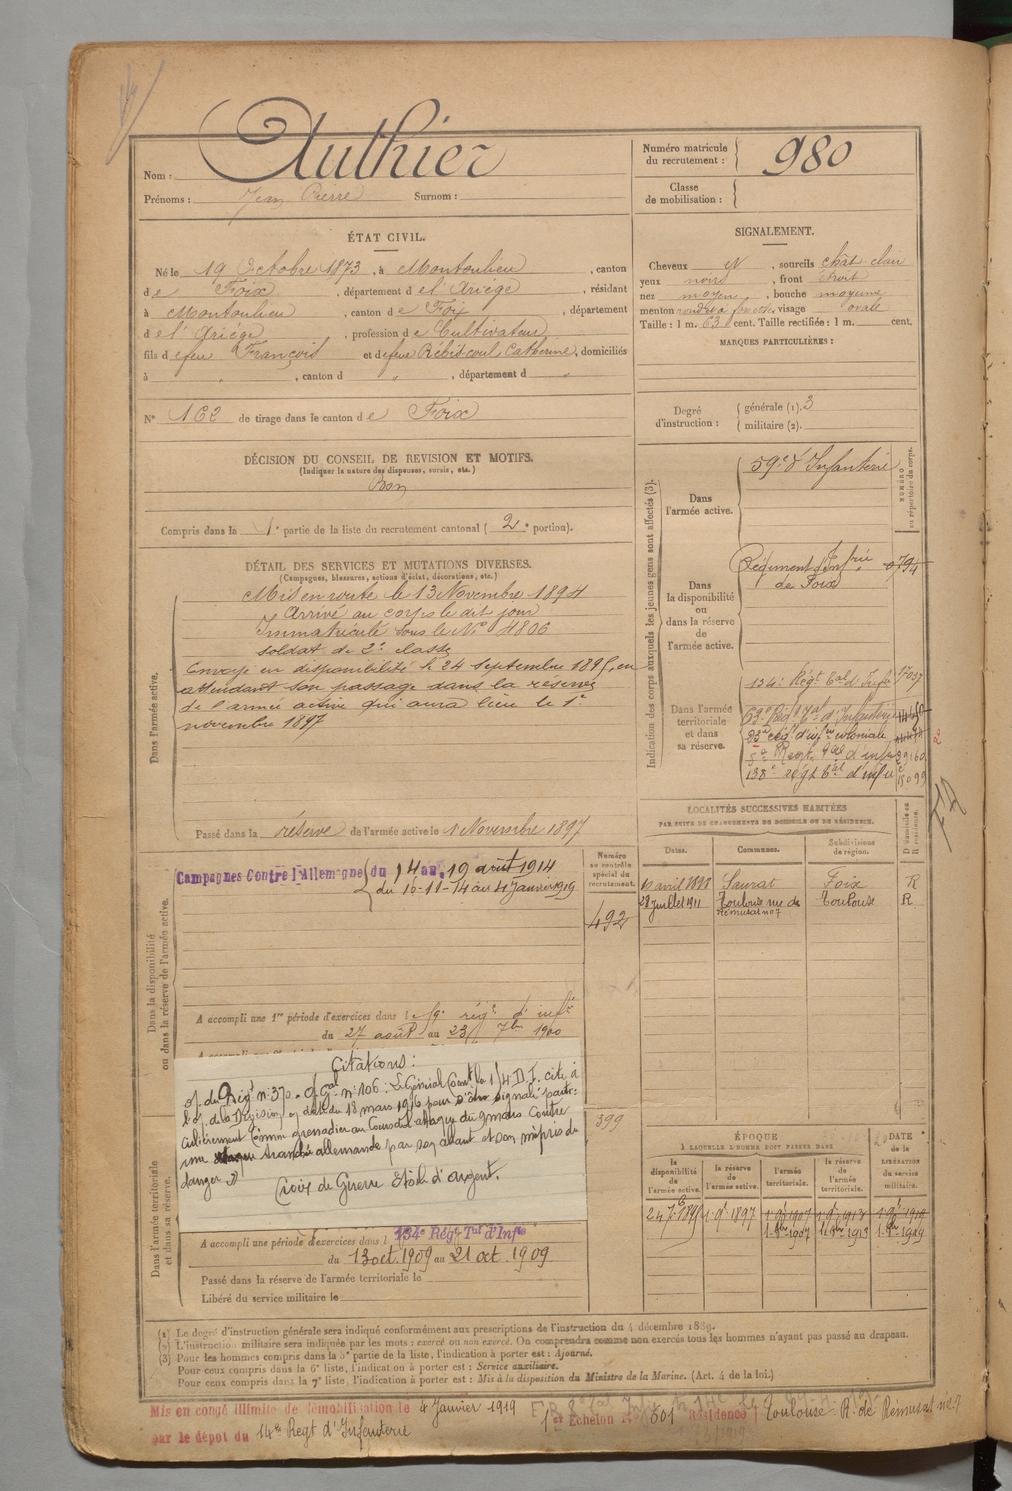 Nom : Authier
Prénoms : Jean Pierre Surnom :
Numéro matricule du recrutement : 980
Classe de mobilisation :
ÉTAT CIVIL.
Né le 19 Octobre 1873, à Montoulieu, canton
de Foix, département de l'Ariége, résidant
à Montoulieu, canton de Foix, département
de l'Ariége, profession de Cultivateur
fils de feu François et de feu Rébit-coul Catherine, domiciliés
à " , canton d " , département d "
N° 162 de tirage dans le canton de Foix
SIGNALEMENT.
Cheveux N, sourcils chât clair
yeux noirs, front étroit
nez moyen, bouche moyenne
menton rond, visage ovale
Taille : 1 m. 63 cent. Taille rectifiée : 1 m. cent.
MARQUES PARTICULIÈRES :
Degré d'instruction : générale (1). 3
militaire (2).
DÉCISION DU CONSEIL DE REVISION ET MOTIFS.
(Indiquer la nature des dispenses, sursis, etc.)
Bon
Compris dans la 1e partie de la liste du recrutement cantonal ( 2e portion).
DÉTAIL DES SERVICES ET MUTATIONS DIVERSES.
(Campagnes, blessures, actions d'éclat, décorations, etc.)
Dans l'armée active.
Mis en route le 13 Novembre 1894
Arrivé au corps le dit jour
Immatriculé sous le N° 4806
soldat de 2e classe
Envoyé en disponibilité le 24 septembre 1895, en
attendant son passage dans la réserve
de l'armée active qui aura lieu le 1er
novembre 1897
Passé dans la réserve de l'armée active le 1 Novembre 1897
Indication des corps auxquels les jeunes gens sont affectés (3).
NUMÉRO au répertoire du corps.
Dans l'armée active.
59e d'Infanterie
Dans la disponibilité ou dans la réserve de l'armée active.
Régiment d'Infrie
de Foix 0794
Dans l'armée territoriale et dans sa réserve.
134e Régt tal d'Infie
63e Régt tal d'Infanterie
régt d'infie coloniale
Régt tal d'infie
138e régt tal d'infie
LOCALITÉS SUCCESSIVES HABITÉES
PAR SUITE DE CHANGEMENTS DE DOMICILE OU DE RÉSIDENCE.
Dates. Communes. Subdivisions de région. D domicile ou R résidence.
10 avril 1898 Saurat Foix R
28 juillet 1911 Toulouse rue de Rémusat no 7 Toulouse R
Dans la disponibilité ou dans la réserve de l'armée active.
Campagnes Contre l'Allemagne du 4 au 19 août 1914
du 10-11-14 au 4 janvier 1919
Numéro au contrôle spécial du recrutement.
492
A accompli une 1re période d'exercices dans le 59e régt d'infie
du 27 août au 23 7bre 1900
Citations :
of. du Régt n° 370. of. Gal n° 106 : Le Général Comt la 14 D.I. cite à
l'o. de la Division en date du 18 mars 1916 pour s'être signalé parti-
culièrement comme grenadier au cours d'attaque du 9 mars contre
une tranchée allemande par son allant et son mépris du
danger
Croix de Guerre Etoile d'argent.
399
Dans l'armée territoriale et dans sa réserve.
A accompli une période d'exercices dans l 134e Régt Tal d'Infie
du 13 oct. 1909 au 21 oct. 1909
Passé dans la réserve de l'armée territoriale le
Libéré du service militaire le
ÉPOQUE
À LAQUELLE L'HOMME DOIT PASSER DANS
la disponibilité de l'armée active. la réserve de l'armée active. l'armée territoriale. la réserve de l'armée territoriale. DATE de la LIBÉRATION du service militaire.
24 7bre 1895 1 9bre 1897 1 9bre 1907 1 9bre 1913 1 9bre 1919
(1) Le degré d'instruction générale sera indiqué conformément aux prescriptions de l'instruction du 4 décembre 1889.
(2) L'instruction militaire sera indiquée par les mots : exercé ou non exercé. On comprendra comme non exercés tous les hommes n'ayant pas passé au drapeau.
(3) Pour les hommes compris dans la 5e partie de la liste, l'indication à porter est : Ajourné.
Pour ceux compris dans la 6e liste, l'indication à porter est : Service auxiliaire.
Pour ceux compris dans la 7e liste, l'indication à porter est : Mis à la disposition du Ministre de la Marine. (Art. 4 de la loi.)
Mis en congé illimité de démobilisation le 4 Janvier 1919
par le dépot du 14e Régt d'Infanterie
1er Echelon N° 501 Résidence Toulouse R. de Rémusat n° 7